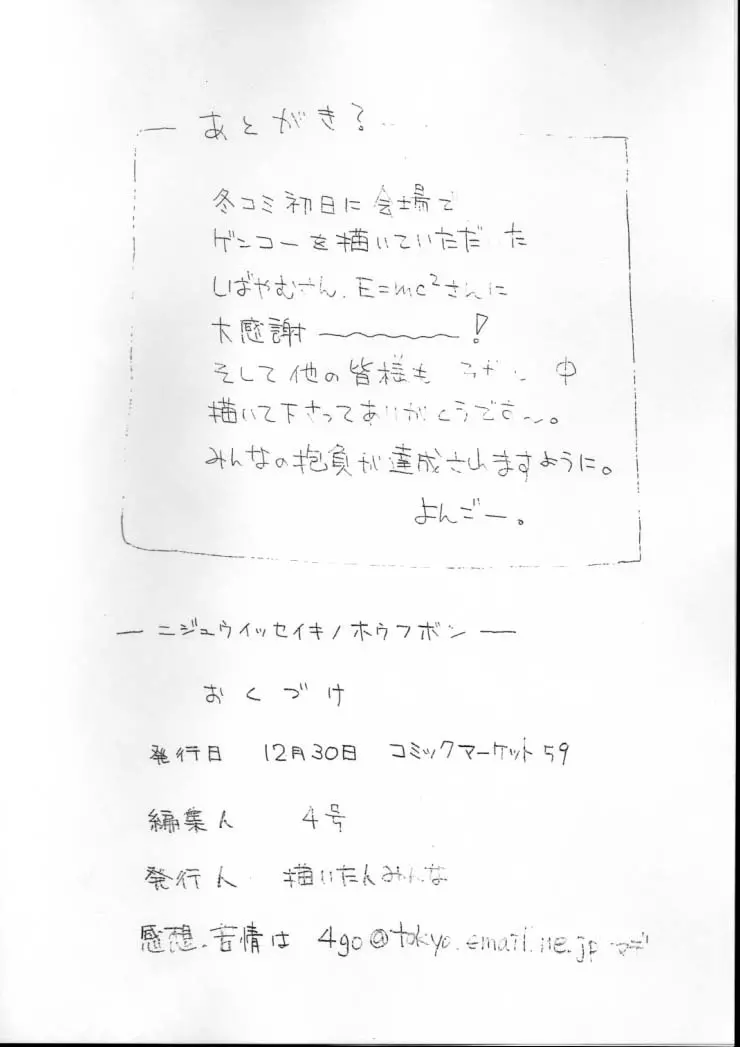 あとがき?
冬コミ初日に会場で
ゲンコーを描いていただ た
しばやむさん、E=mc²さんに
大感謝〜〜〜!
そして他の皆様も 中
描いて下さってありがとうです〜。
みんなの抱負が達成されますように。
よんごー。
ーニジュウイッセイキノホウフボンー
おくづけ
発行日 12月30日 コミックマーケット59
編集人 4号
発行人 描いたんみんな
感想、苦情は 4go@tokyo.email.ne.jp マデ